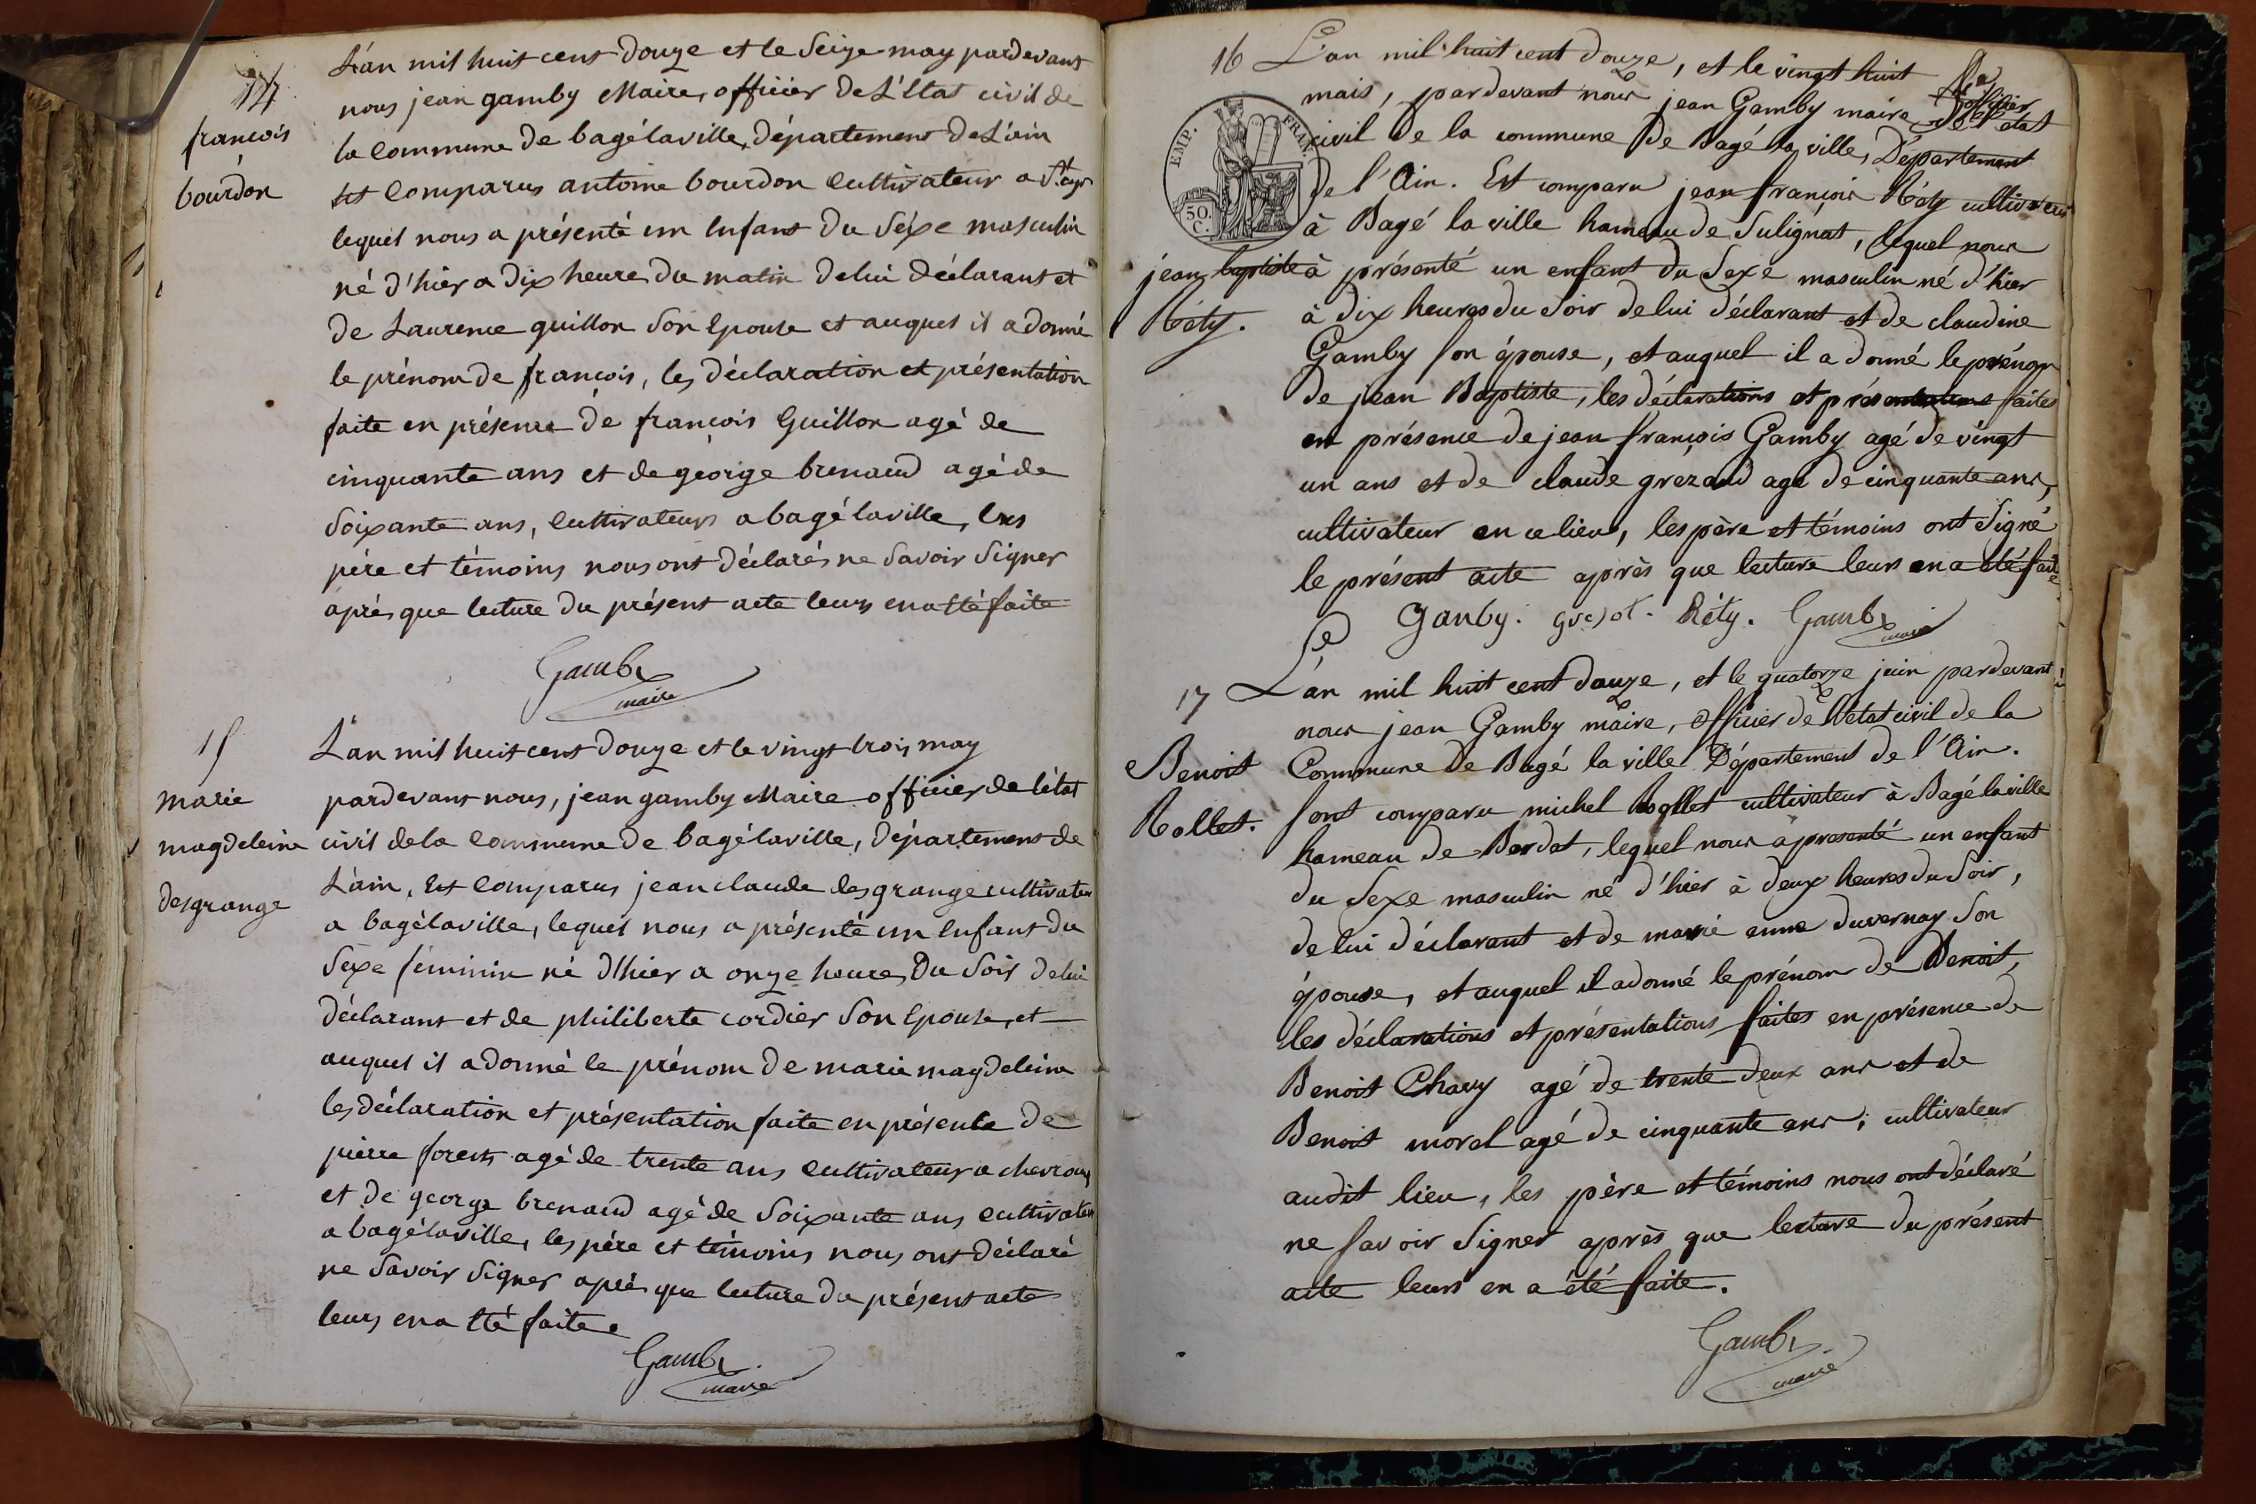 14
françois
bourdon
L'an mil huit cent douze et le seize may pardevant
nous jean gamby Maire, officier De L'Etat civil de
la Commune de bagélaville, département de L'ain
Est Comparus antoine bourdon Cultivateur a St
lequel nous a présenté un Enfant Du Séxe masculin
né d'hier a Dix heure Du matin De lui Déclarant et
de Laurence guillon Son Epouse et auquel il a donné
le prénom de françois, les déclaration et présentation
faite en présence de françois Guillon agé de
cinquante ans et de george brenaud agé de
Soixante ans, Cultivateurs a bagélaville, Les
pére et témoins nous ont Déclarés ne Savoir Signer
aprés que lecture Du présent acte leurs en a Eté faite
Gamby
maire
15
marie
magdeleine
desgrange
L'an mil huit cent Douze et le vingt trois may
pardevant nous, jean gamby Maire officier de l'état
civil de la Commune de bagélaville, Département de
L'ain, Est Comparus jean claude desgrange cultivateu
a bagélaville, lequel nous a présenté un Enfant Du
Séxe féminin né d'hier a onze heure, Du Soir De lui
Déclarant et de philiberte cordier Son Epouse, et
auquel il a donné le prénom De marie magdeleine
les déclaration et présentation faite en présence De
pierre forest agé de trente ans Cultivateur a chevroux
et De george brenaud agé de Soixante ans Cultivateu
a bagélaville, les pére et témoins nous ont Déclaré
ne Savoir Signer aprés que lecture Du présent acte
leurs en a Eté faite.
Gamby
maire
16
jean baptiste
Réty.
EMP. FRAN.
50. C.
L'an mil huit cent Douze, et le vingt huit
mais, pardevant nous jean Gamby maire officier de l'etat
civil de la commune de Bagé la ville, Département
De l'Ain. Est comparu jean françois Réty cultivateur
à Bagé la ville hameau de Sulignat, lequel nous
à présenté un enfant Du Sexe masculin né d'hier
à Dix heures du Soir de lui Déclarant et de claudine
Gamby son épouse, et auquel il a donné le prénom
De jean Baptiste, les déclarations et présentations faites
en présence de jean françois Gamby agé de vingt
un ans et de claude grezaud agé de cinquante ans,
cultivateur en ce lieu, les père et témoins ont Signé
le présent acte après que lecture leurs en a été faite
Ganby. Réty. Gamby
maire
17
Benoit
Rollet.
L'an mil huit cent douze, et le quatorze juin pardevant
nous jean Gamby maire, officier de l'etat civil de la
Commune De Bagé la ville Département de l'Ain.
sont comparu michel Rollet cultivateur à Bagé la ville
hameau de Bardet, lequel nous a presenté un enfant
du Sexe masculin né d'hier à deux heures du Soir,
de lui déclarant et de marie anne duvernay Son
épouse, et auquel il a donné le prénom de Benoit,
les déclarations et présentations faites en présence de
Benoit Chavy agé de trente Deux ans et de
Benoit morel agé de cinquante ans, cultivateur
audit lieu, les père et témoins nous ont déclaré
ne savoir Signer après que lecture du présent
acte leurs en a été faite.
Gamby
maire